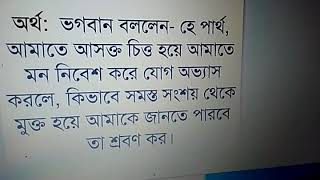 অর্থ: ভগবান বললেন- হে পার্থ,
আমাতে আসক্ত চিত্ত হয়ে আমাতে
মন নিবেশ করে যোগ অভ্যাস
করলে, কিভাবে সমস্ত সংশয় থেকে
মুক্ত হয়ে আমাকে জানতে পারবে
তা শ্রবণ কর।